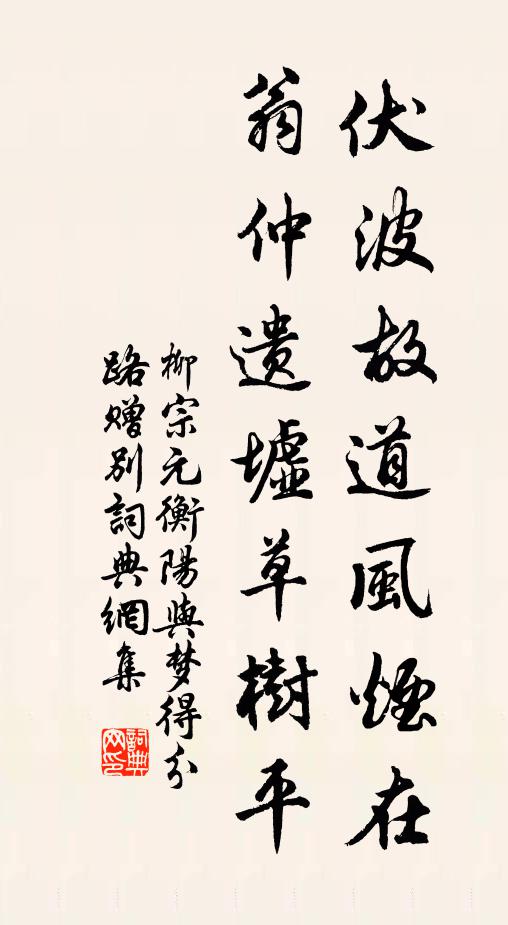 伏波故道風煙在
翁仲遺墟草樹平
柳宗元衡陽與梦得分
路赠别詞典網集
詞典网印